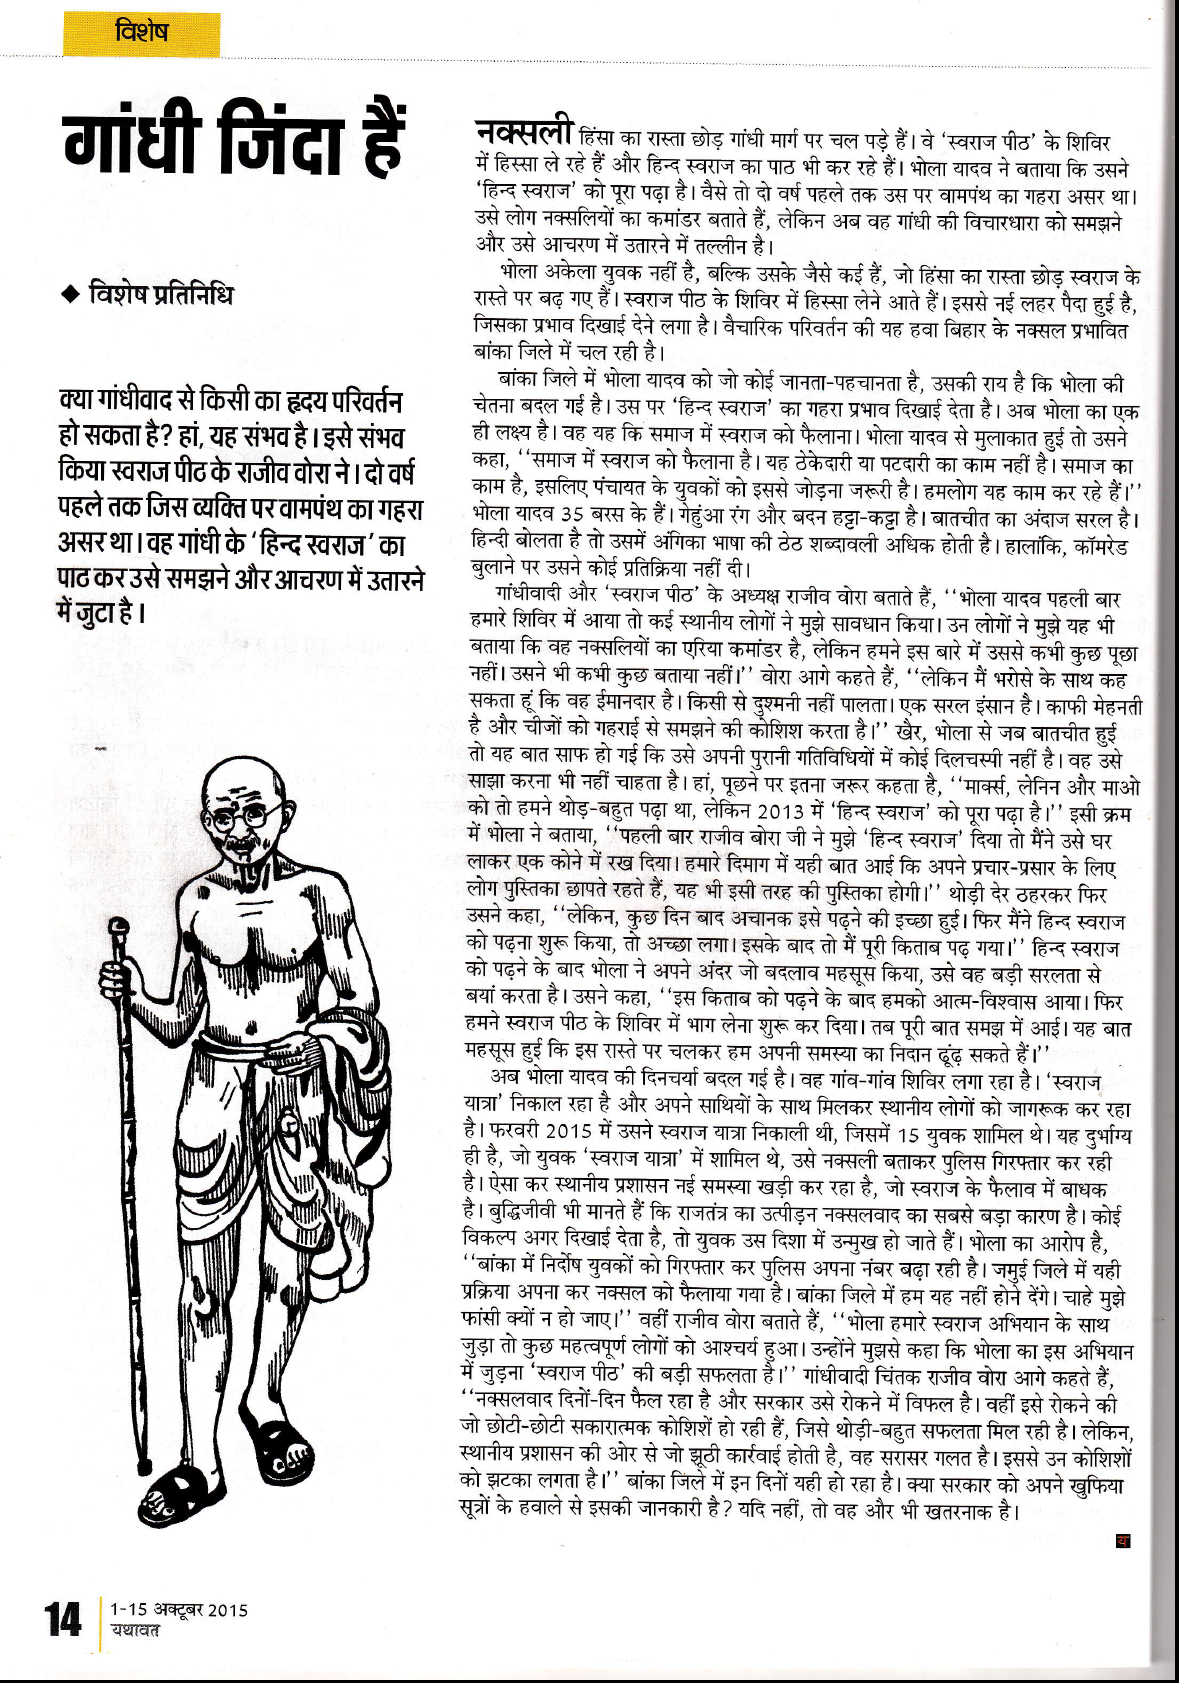 विशेष
गांधी जिंदा हैं
◆ विशेष प्रतिनिधि
क्या गांधीवाद से किसी का हृदय परिवर्तन
हो सकता है? हां, यह संभव है। इसे संभव
किया स्वराज पीठ के राजीव वोरा ने। दो वर्ष
पहले तक जिस व्यक्ति पर वामपंथ का गहरा
असर था। वह गांधी के ‘हिन्द स्वराज’ का
पाठ कर उसे समझने और आचरण में उतारने
में जुटा है।
नक्सली हिंसा का रास्ता छोड़ गांधी मार्ग पर चल पड़े हैं। वे ‘स्वराज पीठ’ के शिविर
में हिस्सा ले रहे हैं और हिन्द स्वराज का पाठ भी कर रहे हैं। भोला यादव ने बताया कि उसने
‘हिन्द स्वराज’ को पूरा पढ़ा है। वैसे तो दो वर्ष पहले तक उस पर वामपंथ का गहरा असर था।
उसे लोग नक्सलियों का कमांडर बताते हैं, लेकिन अब वह गांधी की विचारधारा को समझने
और उसे आचरण में उतारने में तल्लीन है।
भोला अकेला युवक नहीं है, बल्कि उसके जैसे कई हैं, जो हिंसा का रास्ता छोड़ स्वराज के
रास्ते पर बढ़ गए हैं। स्वराज पीठ के शिविर में हिस्सा लेने आते हैं। इससे नई लहर पैदा हुई है,
जिसका प्रभाव दिखाई देने लगा है। वैचारिक परिवर्तन की यह हवा बिहार के नक्सल प्रभावित
बांका जिले में चल रही है।
बांका जिले में भोला यादव को जो कोई जानता-पहचानता है, उसकी राय है कि भोला की
चेतना बदल गई है। उस पर ‘हिन्द स्वराज’ का गहरा प्रभाव दिखाई देता है। अब भोला का एक
ही लक्ष्य है। वह यह कि समाज में स्वराज को फैलाना। भोला यादव से मुलाकात हुई तो उसने
कहा, ‘‘समाज में स्वराज को फैलाना है। यह ठेकेदारी या पटदारी का काम नहीं है। समाज का
काम है, इसलिए पंचायत के युवकों को इससे जोड़ना जरूरी है। हमलोग यह काम कर रहे हैं।’’
भोला यादव 35 बरस के हैं। गेहुंआ रंग और बदन हट्टा-कट्टा है। बातचीत का अंदाज सरल है।
हिन्दी बोलता है तो उसमें अंगिका भाषा की ठेठ शब्दावली अधिक होती है। हालांकि, कॉमरेड
बुलाने पर उसने कोई प्रतिक्रिया नहीं दी।
गांधीवादी और ‘स्वराज पीठ’ के अध्यक्ष राजीव वोरा बताते हैं, ‘‘भोला यादव पहली बार
हमारे शिविर में आया तो कई स्थानीय लोगों ने मुझे सावधान किया। उन लोगों ने मुझे यह भी
बताया कि वह नक्सलियों का एरिया कमांडर है, लेकिन हमने इस बारे में उससे कभी कुछ पूछा
नहीं। उसने भी कभी कुछ बताया नहीं।’’ वोरा आगे कहते हैं, ‘‘लेकिन मैं भरोसे के साथ कह
सकता हूं कि वह ईमानदार है। किसी से दुश्मनी नहीं पालता। एक सरल इंसान है। काफी मेहनती
है और चीजों को गहराई से समझने की कोशिश करता है।’’ खैर, भोला से जब बातचीत हुई
तो यह बात साफ हो गई कि उसे अपनी पुरानी गतिविधियों में कोई दिलचस्पी नहीं है। वह उसे
साझा करना भी नहीं चाहता है। हां, पूछने पर इतना जरूर कहता है, ‘‘मार्क्स, लेनिन और माओ
को तो हमने थोड़-बहुत पढ़ा था, लेकिन 2013 में ‘हिन्द स्वराज’ को पूरा पढ़ा है।’’ इसी क्रम
में भोला ने बताया, ‘‘पहली बार राजीव बोरा जी ने मुझे ‘हिन्द स्वराज’ दिया तो मैंने उसे घर
लाकर एक कोने में रख दिया। हमारे दिमाग में यही बात आई कि अपने प्रचार-प्रसार के लिए
लोग पुस्तिका छापते रहते हैं, यह भी इसी तरह की पुस्तिका होगी।’’ थोड़ी देर ठहरकर फिर
उसने कहा, ‘‘लेकिन, कुछ दिन बाद अचानक इसे पढ़ने की इच्छा हुई। फिर मैंने हिन्द स्वराज
को पढ़ना शुरू किया, तो अच्छा लगा। इसके बाद तो मैं पूरी किताब पढ़ गया।’’ हिन्द स्वराज
को पढ़ने के बाद भोला ने अपने अंदर जो बदलाव महसूस किया, उसे वह बड़ी सरलता से
बयां करता है। उसने कहा, ‘‘इस किताब को पढ़ने के बाद हमको आत्म-विश्वास आया। फिर
हमने स्वराज पीठ के शिविर में भाग लेना शुरू कर दिया। तब पूरी बात समझ में आई। यह बात
महसूस हुई कि इस रास्ते पर चलकर हम अपनी समस्या का निदान ढूंढ़ सकते हैं।’’
अब भोला यादव की दिनचर्या बदल गई है। वह गांव-गांव शिविर लगा रहा है। ‘स्वराज
यात्रा’ निकाल रहा है और अपने साथियों के साथ मिलकर स्थानीय लोगों को जागरूक कर रहा
है। फरवरी 2015 में उसने स्वराज यात्रा निकाली थी, जिसमें 15 युवक शामिल थे। यह दुर्भाग्य
ही है, जो युवक ‘स्वराज यात्रा’ में शामिल थे, उसे नक्सली बताकर पुलिस गिरफ्तार कर रही
है। ऐसा कर स्थानीय प्रशासन नई समस्या खड़ी कर रहा है, जो स्वराज के फैलाव में बाधक
है। बुद्धिजीवी भी मानते हैं कि राजतंत्र का उत्पीड़न नक्सलवाद का सबसे बड़ा कारण है। कोई
विकल्प अगर दिखाई देता है, तो युवक उस दिशा में उन्मुख हो जाते हैं। भोला का आरोप है,
‘‘बांका में निर्दोष युवकों को गिरफ्तार कर पुलिस अपना नंबर बढ़ा रही है। जमुई जिले में यही
प्रक्रिया अपना कर नक्सल को फैलाया गया है। बांका जिले में हम यह नहीं होने देंगे। चाहे मुझे
फांसी क्यों न हो जाए।’’ वहीं राजीव वोरा बताते हैं, ‘‘भोला हमारे स्वराज अभियान के साथ
जुड़ा तो कुछ महत्वपूर्ण लोगों को आश्चर्य हुआ। उन्होंने मुझसे कहा कि भोला का इस अभियान
में जुड़ना ‘स्वराज पीठ’ की बड़ी सफलता है।’’ गांधीवादी चिंतक राजीव वोरा आगे कहते हैं,
‘‘नक्सलवाद दिनों-दिन फैल रहा है और सरकार उसे रोकने में विफल है। वहीं इसे रोकने की
जो छोटी-छोटी सकारात्मक कोशिशें हो रही हैं, जिसे थोड़ी-बहुत सफलता मिल रही है। लेकिन,
स्थानीय प्रशासन की ओर से जो झूठी कार्रवाई होती है, वह सरासर गलत है। इससे उन कोशिशों
को झटका लगता है।’’ बांका जिले में इन दिनों यही हो रहा है। क्या सरकार को अपने खुफिया
सूत्रों के हवाले से इसकी जानकारी है? यदि नहीं, तो वह और भी खतरनाक है।
य
14
1-15 अक्टूबर 2015
यथावत